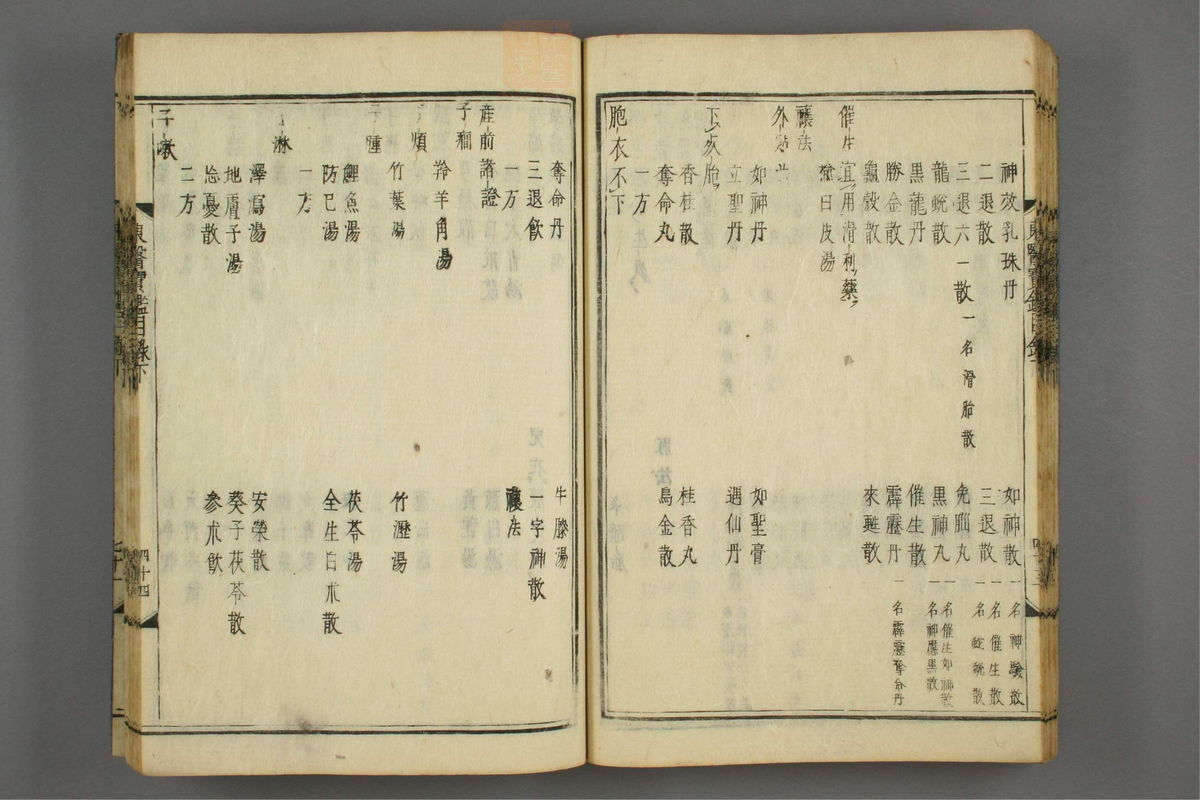 神效乳珠丹 如神散 一名神驗散
二退散 三退散 一名催生散 一名蛇蛻散
三退六一散 一名滑胎散 兔腦丸
龍蛻散 黑神丸 一名催生如神散 一名神應黑散
黑龍丹 催生散
勝金散 霹靂丹 一名霹靂奪命丹
龜殼散 來甦散
催生宜用滑利藥
楡白皮湯
禳法
外
如神丹 如聖膏
立聖丹 遇仙丹
下死胎
香桂散 桂香丸
奪命丸 烏金散
一方
胞衣不下
奪命丹 牛膝湯
三退飮 一字神散
一方 禳法
産前諸證
子癎
羚羊角湯
子煩
竹葉湯 竹瀝湯
子腫
鯉魚湯 茯苓湯
防已湯 全生白朮散
一方
淋
澤瀉湯 安榮散
地膚子湯 葵子茯苓散
忘憂散 參朮飮
二方
子嗽
東醫寶鑑目錄下 四十四